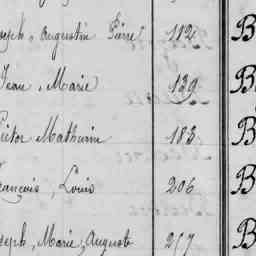 Joseph, Augustin Pierre 112 B
Jean, Marie 139 B
Victor Mathurin 183 B
François, Louis 206 B
Joseph, Marie, Auguste 217 B